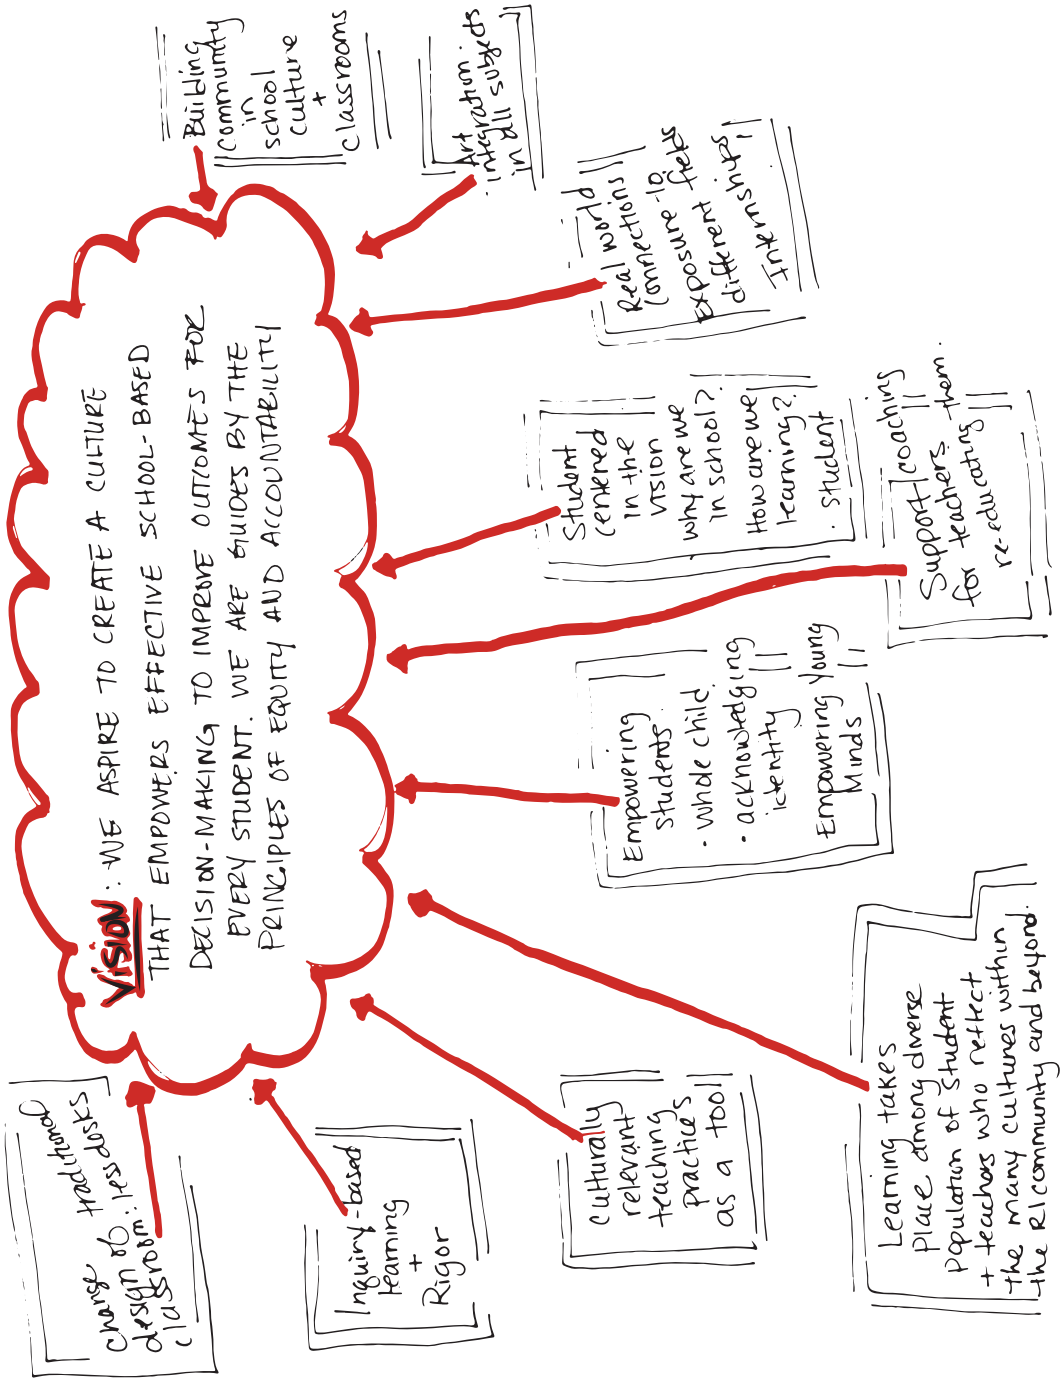 VISION: WE ASPIRE TO CREATE A CULTURE
THAT EMPOWERS EFFECTIVE SCHOOL-BASED
DECISION-MAKING TO IMPROVE OUTCOMES FOR
EVERY STUDENT. WE ARE GUIDES BY THE
PRINCIPLES OF EQUITY AND ACCOUNTABILITY
change of traditional
design of
classroom: less desks
Inquiry-based
learning
+
Rigor
culturally
relevant
teaching
practices
as a tool
Learning takes
place among diverse
Population of student
+ teachers who reflect
the many cultures within
the RI community and beyond.
Empowering
students
• whole child.
• acknowledging
identity
Empowering Young
Minds
Support/coaching
for teachers.
re-educating them.
Student
centered
in the
vision
why are we
in school?
How are we
learning?
• student
Real world
connections
Exposure to
different fields
Internships,
Art
integration
in all subjects
Building
community
in
school
culture
+
classrooms